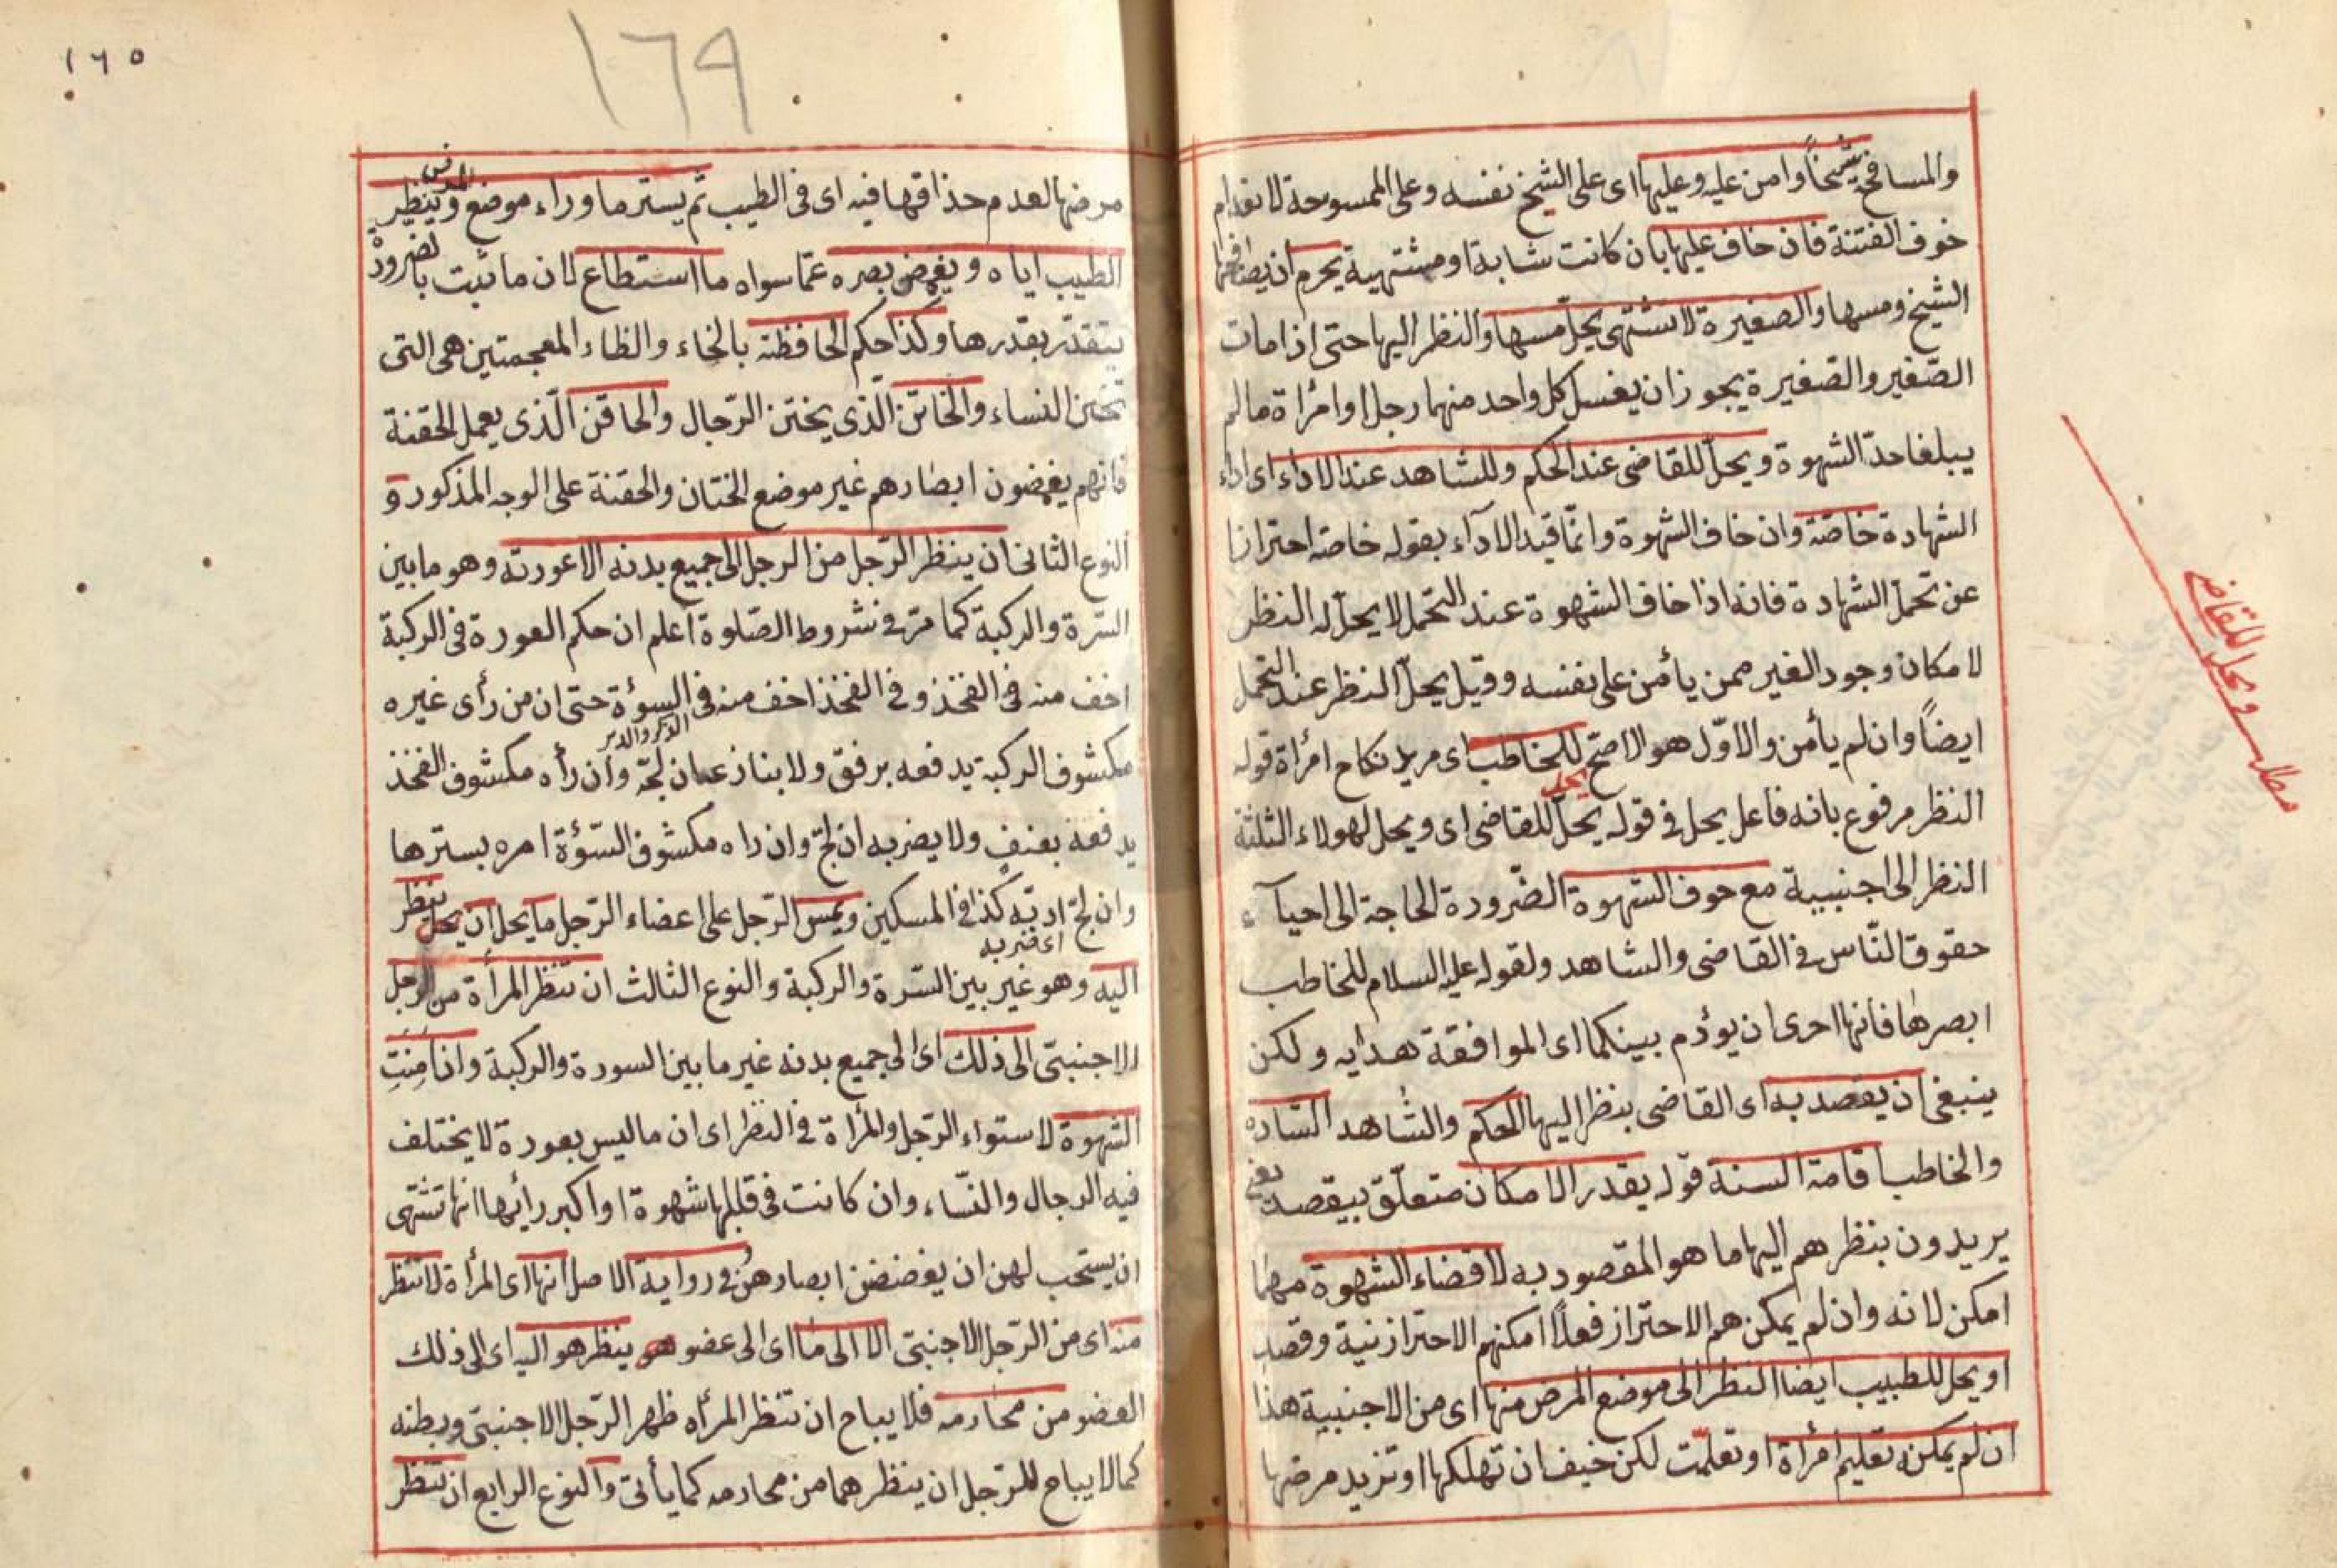 والمسافح شيخاً وامن عليه وعليها اى على الشيخ نفسه وعلى الممسوحة لانعدام
خوف الفتنة فان خاف عليها بان كانت شابة او مشتهية يحرم ان يصافحها
الشيخ ومسها والصغيرة لا تشتهى يحلّ مسها والنظر اليها حتى اذا مات
الصّغير والصّغيرة يجوز ان يغسل كل واحد منهما رجل او امرأة مالم
يبلغا حدّ الشهوة ويحلّ للقاضى عند الحكم وللشاهد عند الاداء اى اداء
الشهادة خاصّة وان خاف الشهوة وانّما قيد الادآء بقوله خاصة احترازا
عن تحمل الشهادة فانه اذا خاف الشهوة عند التحمل لا يحلّ له النظر
لامكان وجود الغير ممن يأمن على نفسه ووقيل يحلّ النظر عند التحمل
ايضاً وان لم يأمن والاوّل هو الاصحّ للخاطب اى مريد نكاح امرأة قوله
يحل
النظر مرفوع بانه فاعل يحل فى قوله يحلّ للقاضى اى ويحل لهولاء الثلثة
النظر الى اجنبيية مع خوف الشهوة الضّرورة الحاجة الى احيآء
حقوق النّاس فى القاضى والشاهد ولقوله عليه السلام للخاطب
ابصرها فانها احرى ان يؤدم بينكما اى الموافقة هدايه ولكن
ينبغى ان يقصد به اى القاضى بنظر اليها الحكم والشاهد الشاده
والخاطب اقامة السنة قوله بقدر الامكان متعلّق بيقصد يعنى
يريدون بنظرهم اليها ما هو المقصود به لا قضاء الشهوة مهما
امكن لانه وان لم يمكن هم الاحتراز فعلاً امكنهم الاحتراز نية وقصد
او يحل للطبيب ايضا النظر الى موضع المرض منها اى من الاجنبية هذا
ان لم يمكن تعليم امرأة او تعلمّت لكن خيف ان تهلكها او تزيد مرضها
مطلب ويحل للقاضى
١٦٥
١٦٩
مرضها لعدم حذاقها فيه اى فى الطيب ثم يستر ما وراء موضع المرض وينظر
الطيب اياه ويغمض بصره عمّا سواه ما استطاع لان ما ثبت بالضرورة
يتقدّر بقدرها وكذا حكم الخافظة بالخاء والظاء المعجمتين هى التى
تختن النساء والخاتن الّذى يختن الرّجال والحاقن الّذى يعمل الحقنة
فانهم يغمضون ابصارهم غير موضع الختان والحقنة على الوجه المذكور و
النوع الثانى ان ينظر الرّجل من الرجل الى جميع بدنه الا عورته وهو ما بين
السّرة والركبة كما مرّ فى شروط الصّلوة اعلم ان حكم العورة فى الركبة
اخف منه فى الفخذ وفى الفخذ اخف منه فى السوؤة حتى ان من رأى غيره
الذكر والدبر
مكشوف الركبة يدفعه برفق ولا ينازعه ان لجّ وان رأه مكشوف الفخذ
يدفعه بعنفٍ ولا يضربه ان لجّ وان راه مكشوف السّوؤة امره بسترها
وان لجّ ادبّه كذا فى المسكين ويمس الرّجل على اعضاء الرّجل ما يحل ان يحل ينظر
اى ضربه
اليه وهو غير بين السّرة والركبة والنوع الثالث ان تنظر المرأة من الرجل
الاجنبىّ الى ذلك اى الى جميع بدنه غير ما بين السورة والركبة وان امِنَتِ
الشهوة لاستواء الرّجل والمرأة فى النظر اى ان ما ليس بعورة لا يختلف
فيه الرجال والنّساء وان كانت فى قلبها شهوة او اكبر رأيها انها تشتهى
ان يستحب لهن ان يغضضن ابصارهنّ وفى رواية الاصل انها اى المرأة لا تنظر
منه اى من الرّجل الاجنبىّ الا الى ما اى الى عضو هو ينظر هو اليه اى الى ذلك
العضو من محارمه فلا يباح ان تنظر المرأه ظهر الرّجل الاجنبىّ وبطنه
كما لا يباح للرّجل ان ينظرهما من محارمه كما يأتى والنوع الرابع ان تنظر